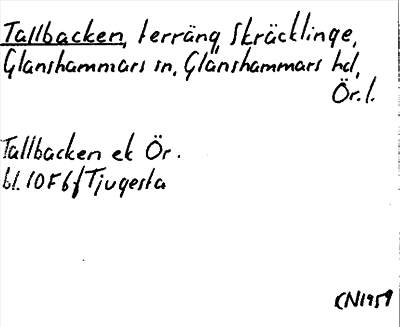 Tallbacken, terräng Skräcklinge,
Glanshammars sn, Glanshammars hd,
Ör. l.
Tallbacken ek Ör.
bl. 10F6f Tjugesta
CN1959